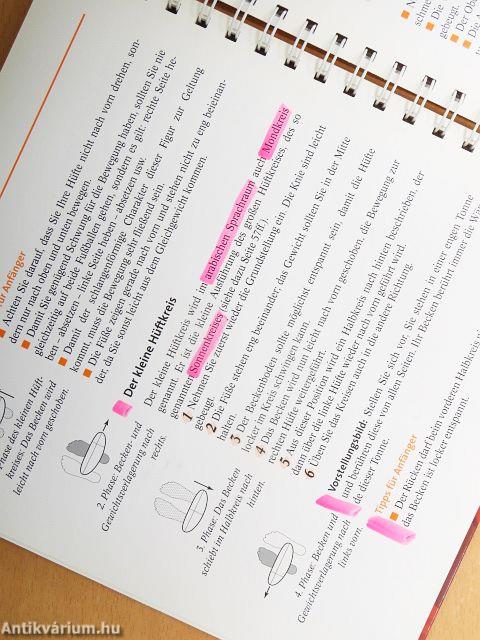 für Anfänger
Achten Sie darauf, dass Sie Ihre Hüfte nicht nach vorn drehen, son-
dern nur nach oben und unten bewegen.
Damit Sie genügend Schwung für die Bewegung haben, sollten Sie nie
gleichzeitig auf beide Fußballen gehen, sondern es gilt: rechte Seite he-
ben – absetzen – linke Seite heben – absetzen usw.
Damit der schlangenförmige Charakter dieser Figur zur Geltung
kommt, muss die Bewegung sehr fließend sein.
Die Füße zeigen gerade nach vorn und stehen nicht zu eng beieinan-
der, da Sie sonst leicht aus dem Gleichgewicht kommen.
Der kleine Hüftkreis
Der kleine Hüftkreis wird im arabischen Sprachraum auch Mondkreis
genannt. Er ist die kleine Ausführung des großen Hüftkreises, des so
genannten Sonnenkreises (siehe dazu Seite 57ff.).
1 Nehmen Sie zuerst wieder die Grundstellung ein. Die Knie sind leicht
gebeugt.
2 Die Füße stehen eng beieinander, das Gewicht sollten Sie in der Mitte
halten.
3 Der Beckenboden sollte möglichst entspannt sein, damit die Hüfte
locker im Kreis schwingen kann.
4 Das Becken wird nun leicht nach vorn geschoben, die Bewegung zur
rechten Hüfte weitergeführt.
5 Aus dieser Position wird ein Halbkreis nach hinten beschrieben, der
dann über die linke Hüfte wieder nach vorn geführt wird.
6 Üben Sie das Kreisen auch in die andere Richtung.
Vorstellungsbild: Stellen Sie sich vor, Sie stehen in einer engen Tonne
und berühren diese von allen Seiten. Ihr Becken berührt immer die
de dieser Tonne.
Tipps für Anfänger
Der Rücken darf beim vorderen Halbkreis
das Becken ist locker entspannt.
Phase des kleinen Hüft-
kreises: Das Becken wird
leicht nach vorn geschoben.
2. Phase: Becken- und
Gewichtsverlagerung nach
rechts.
3. Phase: Das Becken
schiebt im Halbkreis nach
hinten.
4. Phase: Becken und
Gewichtsverlagerung nach
links vorn.
schme
Die
gebeugt.
Der Ob
Die A
Antikvárium.hu